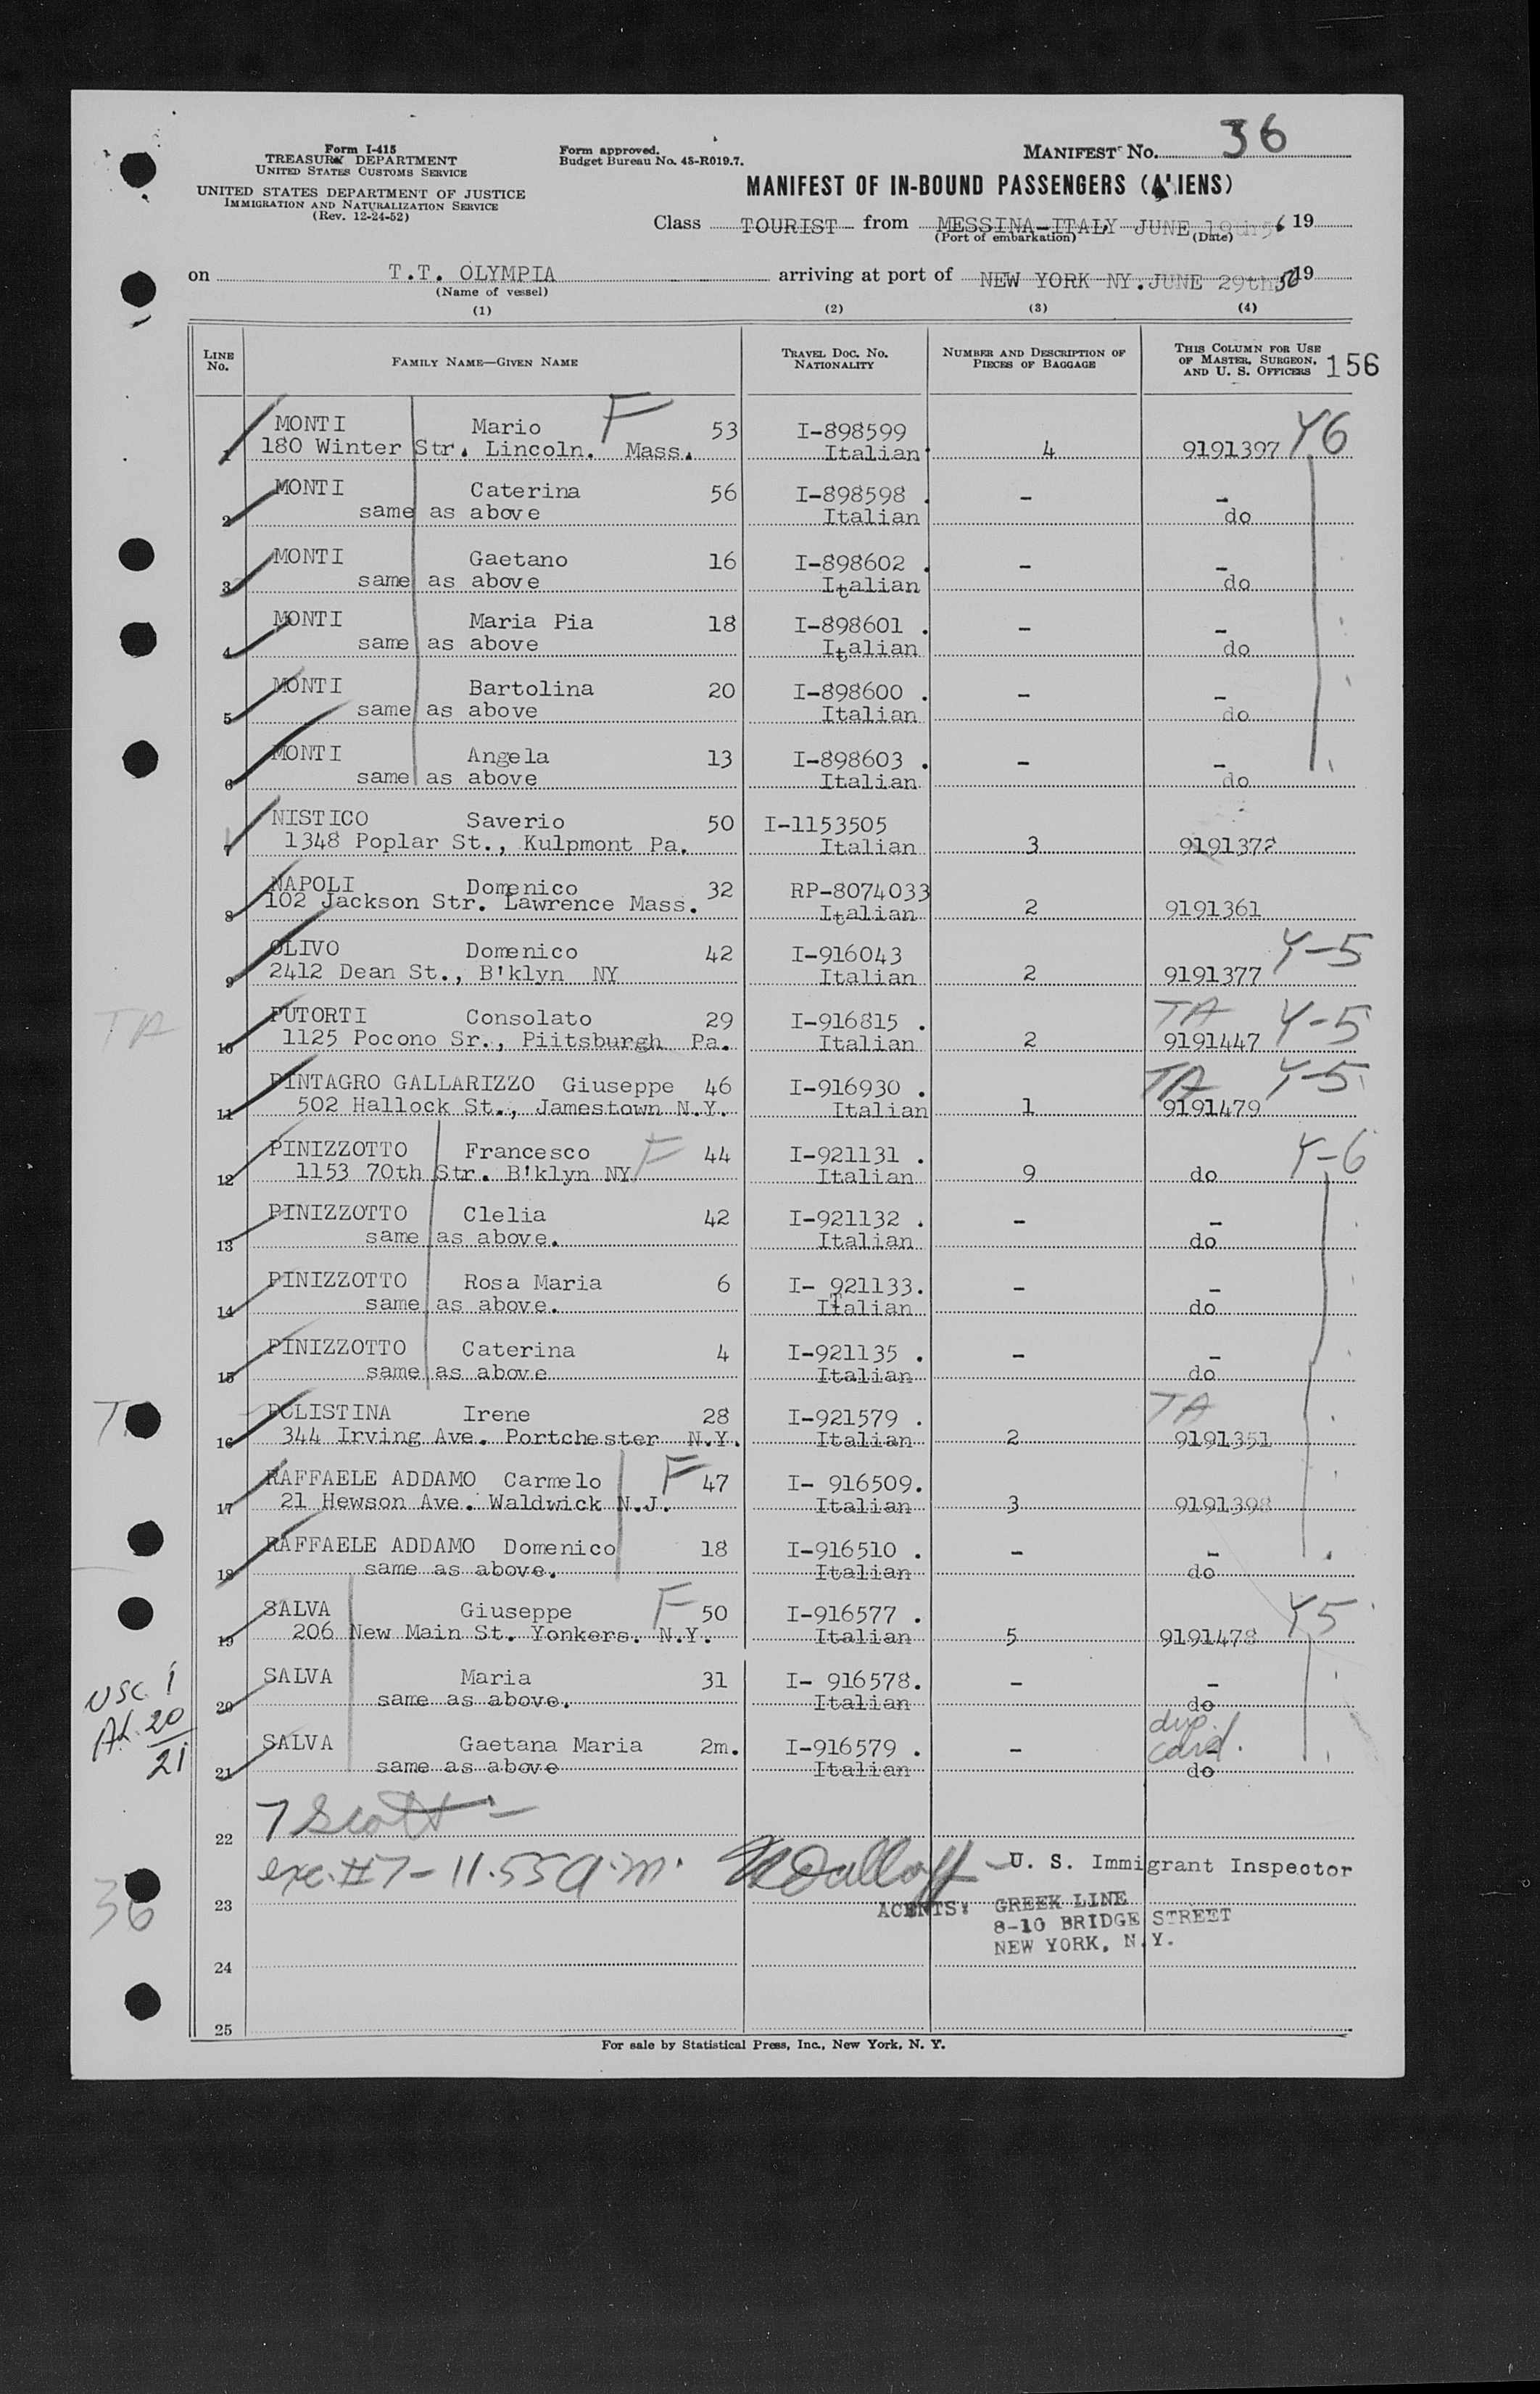 Form I-415
TREASURY DEPARTMENT
UNITED STATES CUSTOMS SERVICE
UNITED STATES DEPARTMENT OF JUSTICE
IMMIGRATION AND NATURALIZATION SERVICE
(Rev. 12-24-52)
Form approved.
Budget Bureau No. 43-R019.7.
MANIFEST No. 36
MANIFEST OF IN-BOUND PASSENGERS (ALIENS)
Class TOURIST from MESSINA-ITALY JUNE 19th 56 19
(Port of embarkation) (Date)
on T.T. OLYMPIA arriving at port of NEW YORK NY. JUNE 29th 56 19
(Name of vessel)
(1) (2) (3) (4)
LINE No. FAMILY NAME—GIVEN NAME TRAVEL DOC. No. NATIONALITY NUMBER AND DESCRIPTION OF PIECES OF BAGGAGE THIS COLUMN FOR USE OF MASTER, SURGEON, AND U. S. OFFICERS 156
MONTI Mario F 53 I-898599 Y6
1 180 Winter Str. Lincoln. Mass. Italian 4 9191397
MONTI Caterina 56 I-898598 . - -
2 same as above Italian do
MONTI Gaetano 16 I-898602 . - -
3 same as above Italian do
MONTI Maria Pia 18 I-898601 . - -
4 same as above Italian do
MONTI Bartolina 20 I-898600 . - -
5 same as above Italian do
MONTI Angela 13 I-898603 . - -
6 same as above Italian do
NISTICO Saverio 50 I-1153505
7 1348 Poplar St., Kulpmont Pa. Italian 3 9191372
NAPOLI Domenico 32 RP-8074033
8 102 Jackson Str. Lawrence Mass. Italian 2 9191361
OLIVO Domenico 42 I-916043 Y-5
9 2412 Dean St., B'klyn NY Italian 2 9191377
TA PUTORTI Consolato 29 I-916815 . TA Y-5
10 1125 Pocono Sr., Piitsburgh Pa. Italian 2 9191447
PINTAGRO GALLARIZZO Giuseppe 46 I-916930 . TA Y-5
11 502 Hallock St., Jamestown N.Y. Italian 1 9191479
PINIZZOTTO Francesco F 44 I-921131 . Y-6
12 1153 70th Str. B'klyn NY Italian 9 do
PINIZZOTTO Clelia 42 I-921132 . - -
13 same as above. Italian do
PINIZZOTTO Rosa Maria 6 I- 921133. - -
14 same as above. Italian do
PINIZZOTTO Caterina 4 I-921135 . - -
15 same as above Italian do
POLISTINA Irene 28 I-921579 . TA
16 344 Irving Ave. Portchester N.Y. Italian 2 9191351
RAFFAELE ADDAMO Carmelo F 47 I- 916509.
17 21 Hewson Ave. Waldwick N.J. Italian 3 9191398
RAFFAELE ADDAMO Domenico 18 I-916510 . - -
18 same as above. Italian do
SALVA Giuseppe F 50 I-916577 . Y5
19 206 New Main St. Yonkers. N.Y. Italian 5 9191478
USC. 1 SALVA Maria 31 I- 916578. - -
20 same as above. Italian do
Al. 20 dup.
21 SALVA Gaetana Maria 2m. I-916579 . - card. -
21 same as above Italian do
7 Scott -
22
exc. #7 - 11.55 a.m. U. S. Immigrant Inspector
23 AGENTS: GREEK LINE
36 8-10 BRIDGE STREET
NEW YORK, N.Y.
24
25
For sale by Statistical Press, Inc., New York, N. Y.